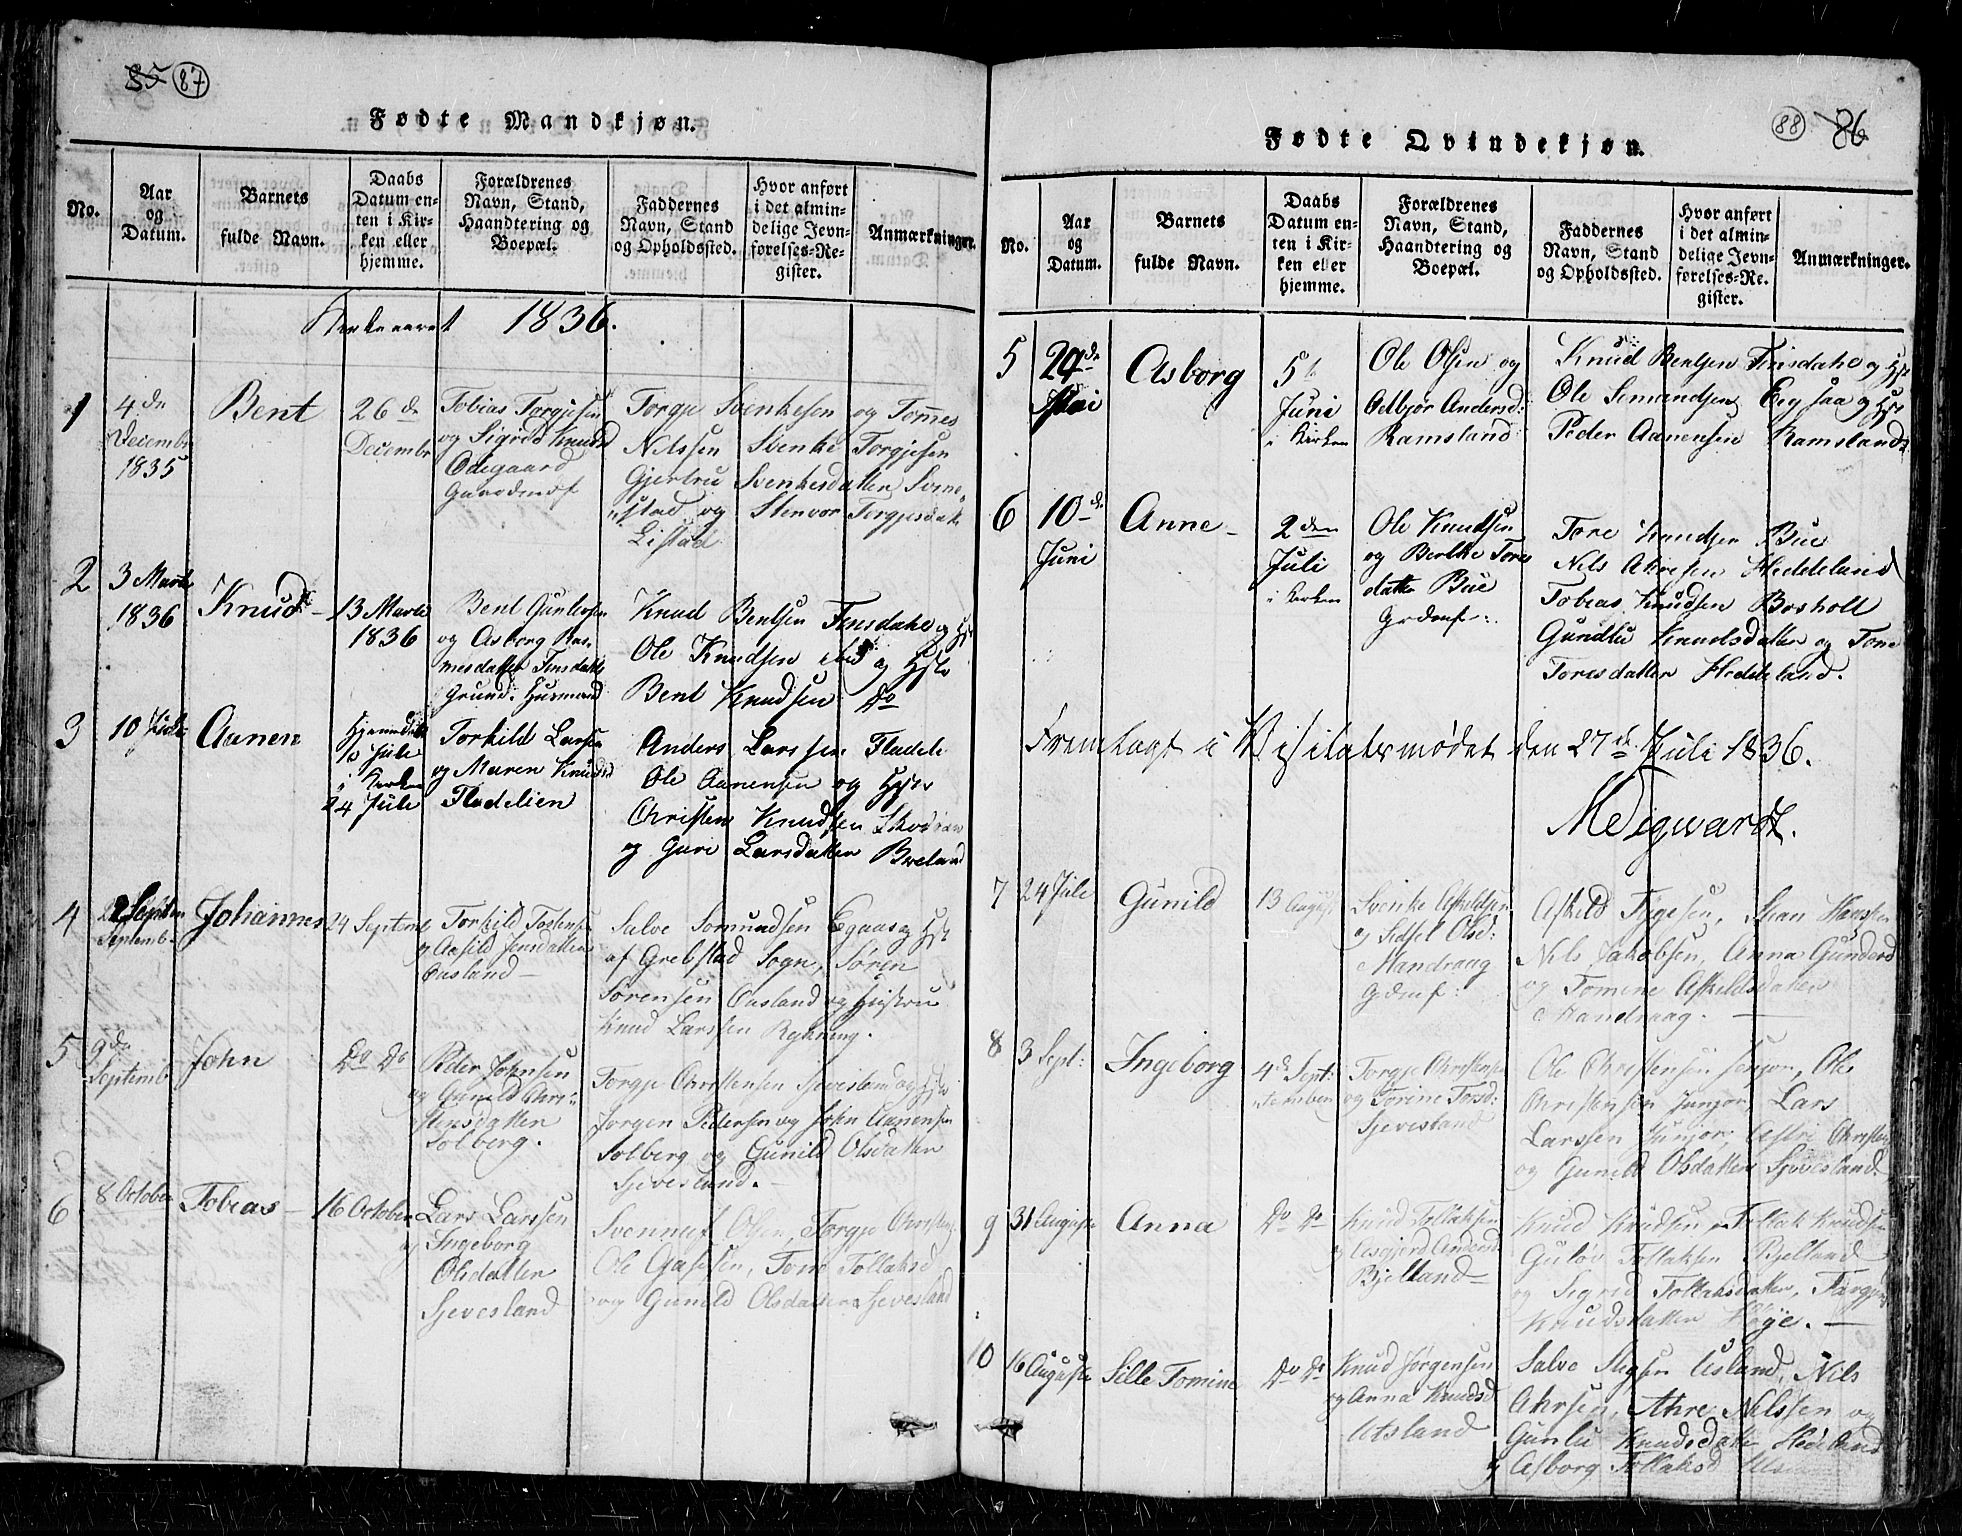 85 87
Fødte Mandkjøn.
No.
Aar
og
Datum.
Barnets
fulde Navn.
Daabs
Datum en-
ten i Kir-
ken eller
hjemme.
Forældrenes
Navn, Stand,
Haandtering og
Boepæl.
Faddernes
Navn, Stand
og Opholdssted.
Hvor anført
i det almin-
delige Jevn-
førelses-Re-
gister.
Anmærkninger.
Kirkeaaret 1836.
1
4de
Decembr
1835
Bent
26de
Decembr
Tobias Torgjesen
og Sigrid Knudsd
Odegaard
Torgje Svenkesen og Tomes
Nilssen Svenke Torgjesen
Gjertru Svenkesdatter Svine-
stad og Stenvor Torgjesdatr
Listad
2
3 Marti
1836
Knud
13 Marti
1836
Bent Guntersen
og Asborg Ras-
mesdatter Finsdahl
Grund. Husmand
Knud Bentsen Finsdahl og Hst
Ole Knudsen ibid og Hstr
Bent Knudsen Do
3
10 Juli
Aanen
Hjemmedøbt
10 Juli
i Kirken
24 Juli
Torkild Larsen
og Maren Knudsd
Fladelien
Anders Larssen Fladeli
Ole Aanensen og Hstr
Christen Knudsen
og Guri Larsdatter Breland
4
Septemb
Johannes
24 Septemb
Torkild Torkensen
og Aasild Jensdatter
Ousland
Salve Somundsen Egaas og Hst
af Grebstad Sogn, Søren
Sørensen Ousland og Hustru
Knud Larssen Rykning.
5
9de
Septemb
John
Do Do
Peder Johnsen
og Gunild Chri-
stensdatter
Solberg.
Torgje Christensen Sjevesland og Hst
Jørgen Pedersen og John Aanensen
Solberg og Gunild Olsdatter
Sjevesland.
6
8 October
Tobias
16 October
Lars Larssen
og Ingeborg
Olsdatter
Sjevesland
Svennuf Olsen, Torgje Christens
Ole Gasessen, Tone Tollaksd
og Gunild Olsdatter Sjevesland
88 86
Fødte Qvindekjøn.
No.
Aar
og
Datum.
Barnets
fulde Navn.
Daabs
Datum en-
ten i Kir-
ken eller
hjemme.
Forældrenes
Navn, Stand,
Haandtering og
Boepæl.
Faddernes
Navn, Stand
og Opholdssted.
Hvor anført
i det almin-
delige Jevn-
førelses-Re-
gister.
Anmærkninger.
5
29de
Mai
Asborg
5te
Juni
i Kirken
Ole Olsen og
Adbjør Andersd:
Ramsland
Knud Bentsen Finsdahl og Hst
Ole Semundsen Eeg Jaa og Hst
Peder Aanensen Ramsland
6
10de
Juni
Anne
2den
Juli
i Kirken
Ole Knudsen
og Berthe Tores
datter Bue
Grdmf:
Tore Knudsen Bue
Nils Ahresen Heddeland
Tobias Knudsen Bosholt
Gundlu Knudsdatter og Tone
Toresdatter Heddeland.
Fremlagt i Visitatsmødet den 27de Juli 1836.
MSigwardt.
7
24 Juli
Gunild
13 August
Svenke Askildsen
og Sidsel Olsd:
Mandraag
Grdmf:
Askild Tygesen, Stean Hansen
Nils Jakobsen, Anna Gunderd
og Tomine Askildsdatter
Mandraag.
8
3 Sept:
Ingeborg
4de Sept:
Torgje Christensen
og Torine Torsd:
Sjevesland
Ole Christensen senjor, Ole
Christensen Junjor, Lars
Larssen Junjor, Astri Christens
og Gunild Olsdatter Sjevesland
9
31 August
Anna
Do Do
Knud Tollaksen
og Asgjerd Andersd
Bjelland
Knud Knudsen, Tollak Knudsen
Guløv Tollaksen Bjelland
og Sigrid Tollaksdatter, Torgjer
Knudsdatter Høye.
10
16 August
Sille Tomine
Do Do
Knud Jørgensen
og Anna Knudsd
Utsland
Salve Stigsen Usland, Nils
Ahrsen, Ahre Nilssen og
Gunlu Knudsdatr Hedeland
og Asborg Tollaksd